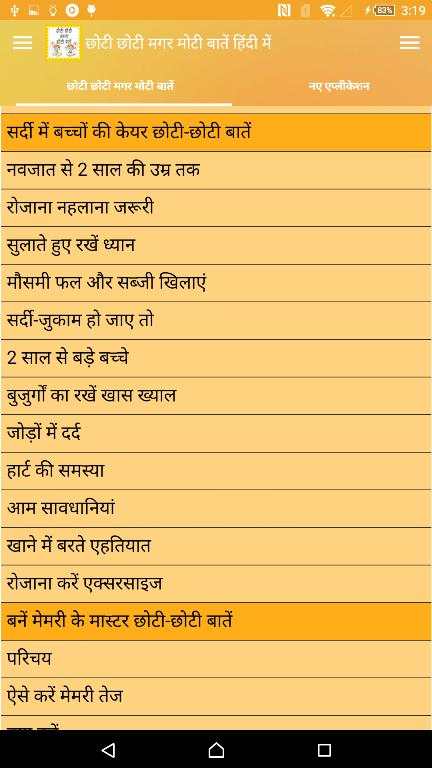 83% 3:19
छोटी छोटी मगर मोटी बातें हिंदी में
छोटी छोटी मगर मोटी बातें
नए एप्लीकेशन
सर्दी में बच्चों की केयर छोटी-छोटी बातें
नवजात से 2 साल की उम्र तक
रोजाना नहलाना जरूरी
सुलाते हुए रखें ध्यान
मौसमी फल और सब्जी खिलाएं
सर्दी-जुकाम हो जाए तो
2 साल से बड़े बच्चे
बुजुर्गों का रखें खास ख्याल
जोड़ों में दर्द
हार्ट की समस्या
आम सावधानियां
खाने में बरते एहतियात
रोजाना करें एक्सरसाइज
बनें मेमरी के मास्टर छोटी-छोटी बातें
परिचय
ऐसे करें मेमरी तेज